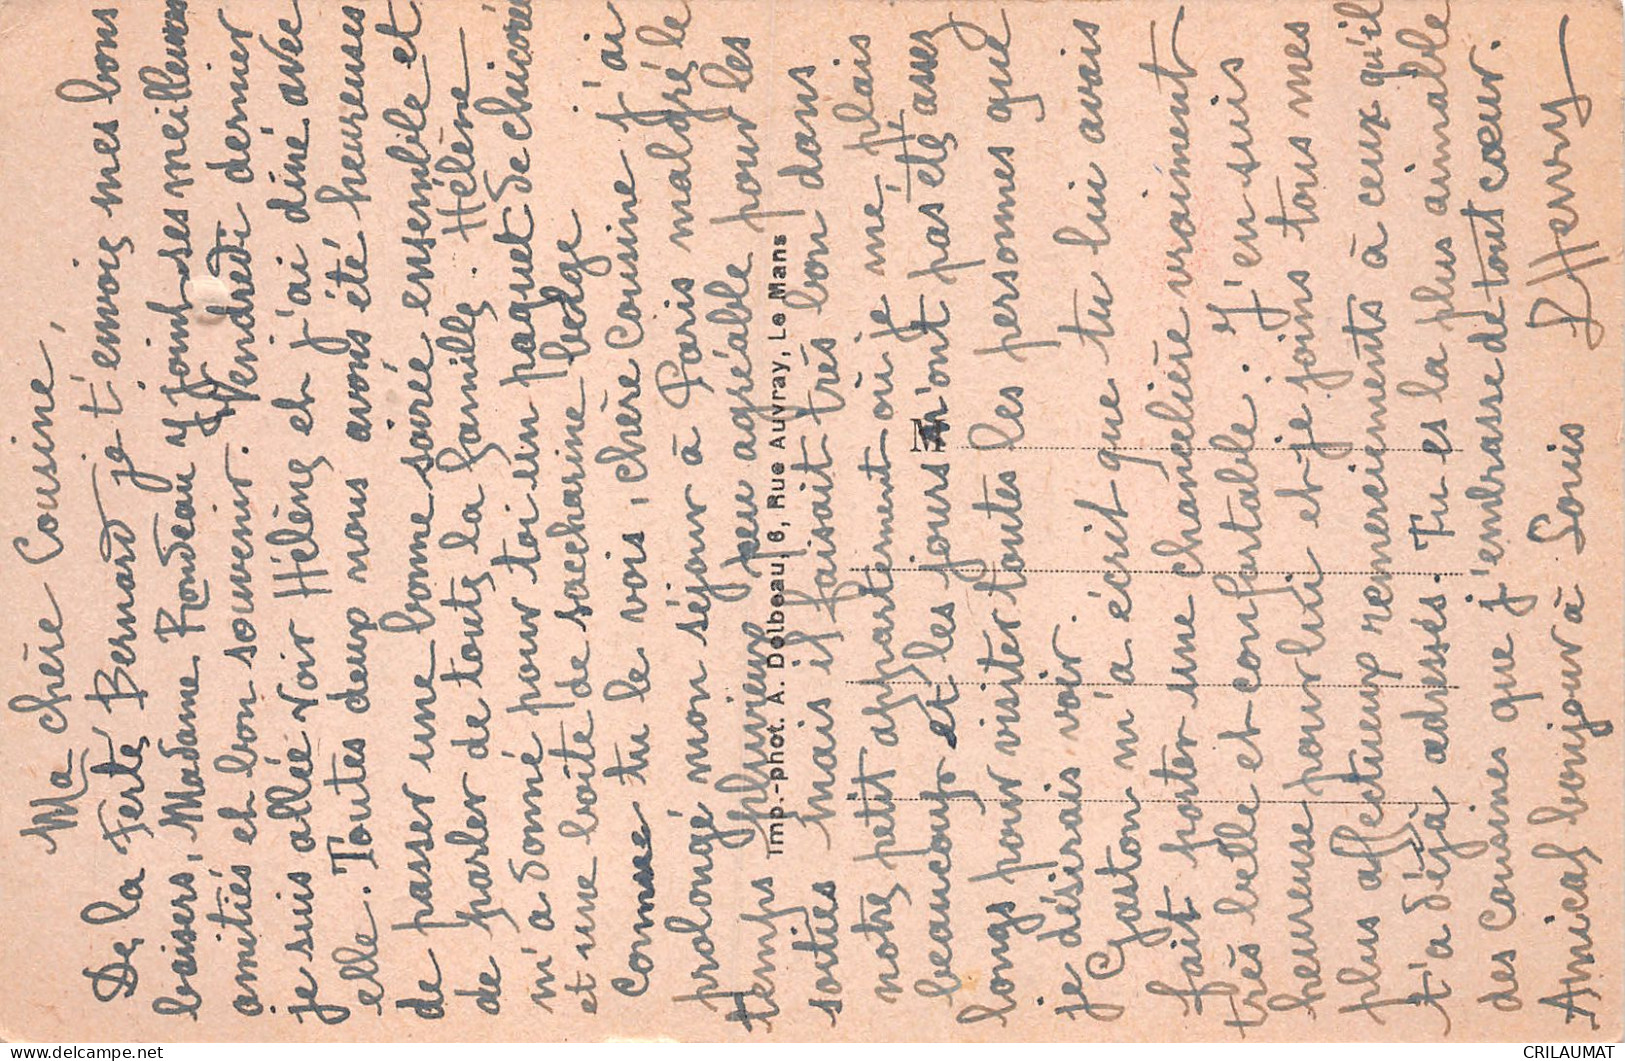 Ma chère Cousine,
De la Ferté Bernard je t'envois mes bons
baisers, Madame Rondeau y joint ses meilleures
amitiés et bon souvenir. Vendredi dernier
je suis allée voir Hélène et j'ai diné avec
elle. Toutes deux nous avons été heureuses
de passer une bonne soirée ensemble et
de parler de toute la famille. Hélène
m'a donné pour toi un paquet de chicorée
et une boîte de saccharine belge
Comme tu le vois, chère Cousine j'ai
prolongé mon séjour à Paris malgré le
temps pluvieux peu agréable pour les
sorties mais il faisait très bon dans
notre petit appartement où je me plais
beaucoup et les jours n'ont pas été assez
longs pour visiter toutes les personnes que
je désirais voir.
Gaston m'a écrit que tu lui avais
fait porter une chancelière vraiment
très belle et confortable. J'en suis
heureuse pour lui et je joins tous mes
plus affectueux remerciements à ceux qu'il
t'a déjà adressés. Tu es la plus aimable
des Cousines que j'embrasse de tout cœur.
Amical bonjour à Louis
Henry
M
Imp.-phot. A. Dolbeau, 6, Rue Auvray, Le Mans
CRILAUMAT